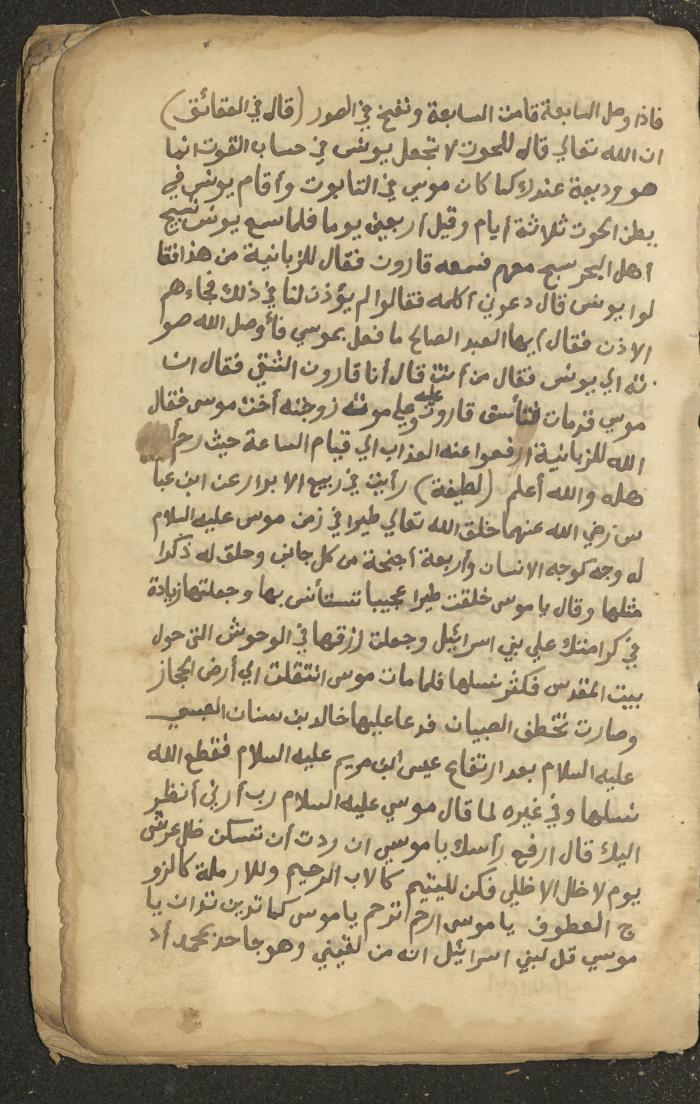 فاذا وصل السابعة قامت السابعة ونفخ في الصور (قال في العقائق)
ان الله تعالي قال للحوت لا تجعل يونس في حساب القوت انما
هو وديعة عندك كما كان موسي في التابوت وأقام يونس في
بطن الحوت ثلاثة أيام وقيل أربعين يوما فلما سمع يونس تسبيح
أهل البحر سبح معهم فسمعه قارون فقال للزبانية من هذا فقا
لوا يونس قال دعوني أكلمه فقالوا لم يؤذن لنا في ذلك فجاءهم
الاذن فقال أيها العبد الصالح ما فعل بموسي فأوصل الله صو
ته الي يونس فقال من أنت قال أنا قارون الشقي فقال ان
موسي قد مات فتأسف قارون عليه وعلي موته زوجته أخت موسي فقال
الله للزبانية ارفعوا عنه العذاب الي قيام الساعة حيث رحم
هله والله أعلم (لطيفة) رأيت في ربيع الابرار عن ابن عبا
س رضي الله عنهما خلق الله تعالي طيرا في زمن موسي عليه السلام
له وجه كوجه الانسان وأربعة أجنحة من كل جانب وخلق له ذكرا
مثلها وقال يا موسي خلقت طيرا عجيبا تستأنس بها وجعلتها زيادة
في كرامتك علي بني اسرائيل وجعلت رزقها في الوحوش التي حول
بيت المقدس فكثر نسلها فلما مات موسي انتقلت الي أرض الحجاز
وصارت تخطف الصبيان فدعا عليها خالد بن سنان العبسي
عليه السلام بعد ارتفاع عيسي ابن مريم عليه السلام فقطع الله
نسلها وفي غيره لما قال موسي عليه السلام رب أرني أنظر
اليك قال ارفع رأسك يا موسي ان ردت أن تسكن ظل عرشي
يوم لا ظل الا ظلي فكن لليتيم كالاب الرحيم وللارملة كالزو
ج العطوف يا موسي ارحم ترحم يا موسي كما تدين تدان يا
موسي قل لبني اسرائيل انه من لقيني وهو جاحد بمحمد أد